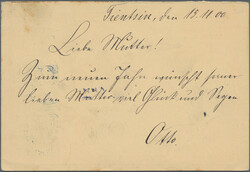 Tientsin, den 15.11.00
Liebe Mutter!
Zum neuen Jahr wünscht seiner
lieben Mutter viel Glück und Segen
Otto.